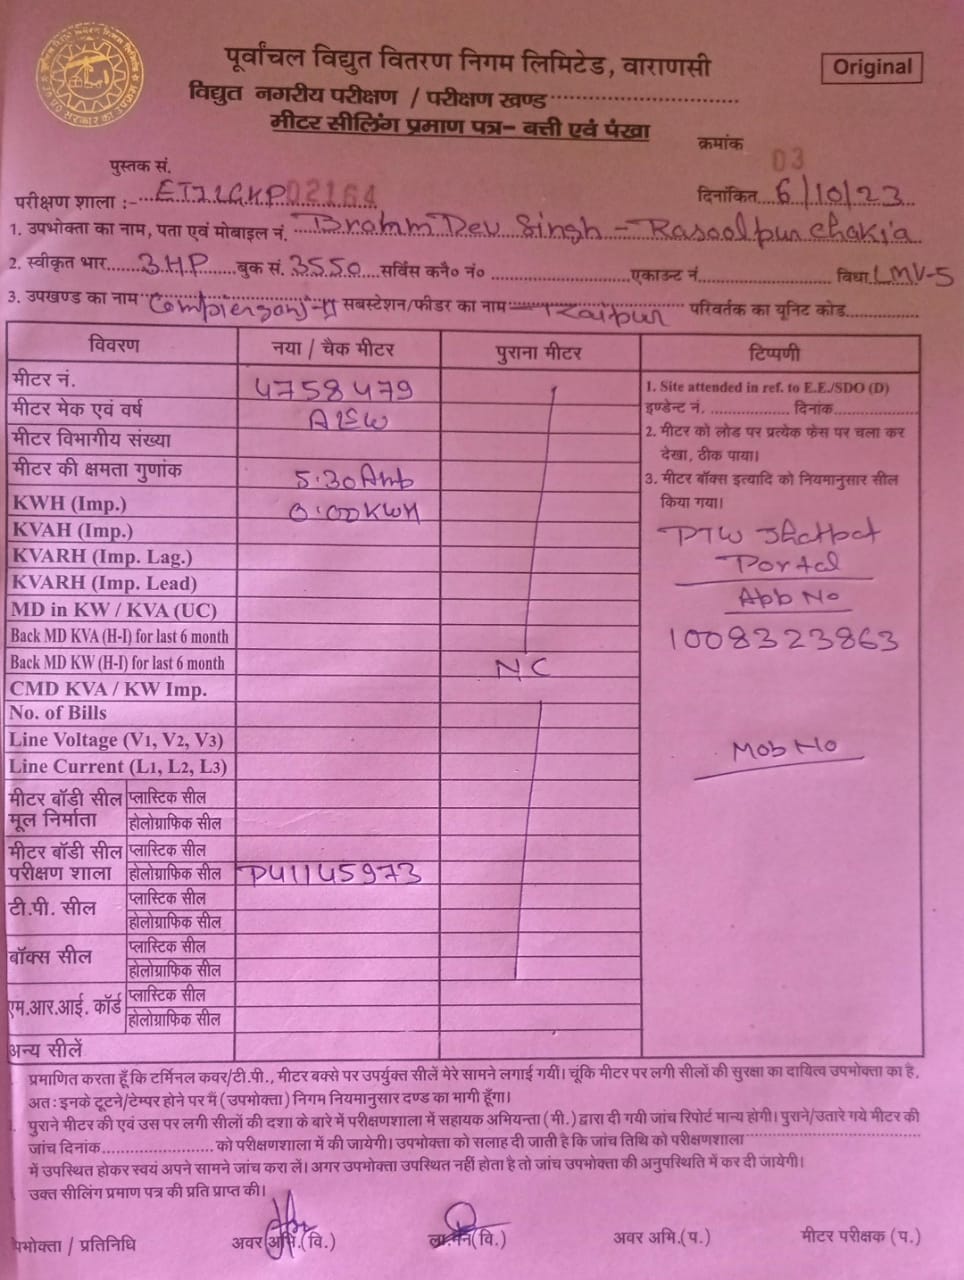 पूर्वांचल विद्युत वितरण निगम लिमिटेड, वाराणसी
Original
विद्युत नगरीय परीक्षण / परीक्षण खण्ड
मीटर सीलिंग प्रमाण पत्र- बत्ती एवं पंखा
क्रमांक 03
पुस्तक सं.
परीक्षण शाला :- ETI LGKP 02164 दिनांकित 6/10/23
1. उपभोक्ता का नाम, पता एवं मोबाइल नं. Brahm Dev Singh - Rasoolpur Chakia
2. स्वीकृत भार 3HP बुक सं. 3550 सर्विस कनै० नं० एकाउन्ट नं. विधा LMV-5
3. उपखण्ड का नाम सबस्टेशन/फीडर का नाम परिवर्तक का यूनिट कोड
विवरण नया / चैक मीटर पुराना मीटर टिप्पणी
मीटर नं. 4758479
मीटर मेक एवं वर्ष
मीटर विभागीय संख्या
मीटर की क्षमता गुणांक 5.30Amb
KWH (Imp.) 0.00KWH
KVAH (Imp.)
KVARH (Imp. Lag.)
KVARH (Imp. Lead)
MD in KW / KVA (UC)
Back MD KVA (H-I) for last 6 month
Back MD KW (H-I) for last 6 month NC
CMD KVA / KW Imp.
No. of Bills
Line Voltage (V1, V2, V3)
Line Current (L1, L2, L3)
मीटर बॉडी सील मूल निर्माता प्लास्टिक सील
होलोग्राफिक सील
मीटर बॉडी सील परीक्षण शाला प्लास्टिक सील
होलोग्राफिक सील P41145973
टी.पी. सील प्लास्टिक सील
होलोग्राफिक सील
बॉक्स सील प्लास्टिक सील
होलोग्राफिक सील
एम.आर.आई. कॉर्ड प्लास्टिक सील
होलोग्राफिक सील
अन्य सीलें
1. Site attended in ref. to E.E./SDO (D)
इण्डेन्ट नं. दिनांक
2. मीटर को लोड पर प्रत्येक फेस पर चला कर
देखा, ठीक पाया।
3. मीटर बॉक्स इत्यादि को नियमानुसार सील
किया गया।
PTW Jhatpat
Portal
App No
1008323863
Mob No
प्रमाणित करता हूँ कि टर्मिनल कवर/टी.पी., मीटर बक्से पर उपर्युक्त सीलें मेरे सामने लगाई गयीं। चूंकि मीटर पर लगी सीलों की सुरक्षा का दायित्व उपभोक्ता का है,
अतः इनके टूटने/टेम्पर होने पर मैं (उपभोक्ता) निगम नियमानुसार दण्ड का भागी हूँगा।
पुराने मीटर की एवं उस पर लगी सीलों की दशा के बारे में परीक्षणशाला में सहायक अभियन्ता (मी.) द्वारा दी गयी जांच रिपोर्ट मान्य होगी। पुराने/उतारे गये मीटर की
जांच दिनांक को परीक्षणशाला में की जायेगी। उपभोक्ता को सलाह दी जाती है कि जांच तिथि को परीक्षणशाला
में उपस्थित होकर स्वयं अपने सामने जांच करा लें। अगर उपभोक्ता उपस्थित नहीं होता है तो जांच उपभोक्ता की अनुपस्थिति में कर दी जायेगी।
उक्त सीलिंग प्रमाण पत्र की प्रति प्राप्त की।
पभोक्ता / प्रतिनिधि अवर अभि.(वि.) ला.मैन(वि.) अवर अभि.(प.) मीटर परीक्षक (प.)